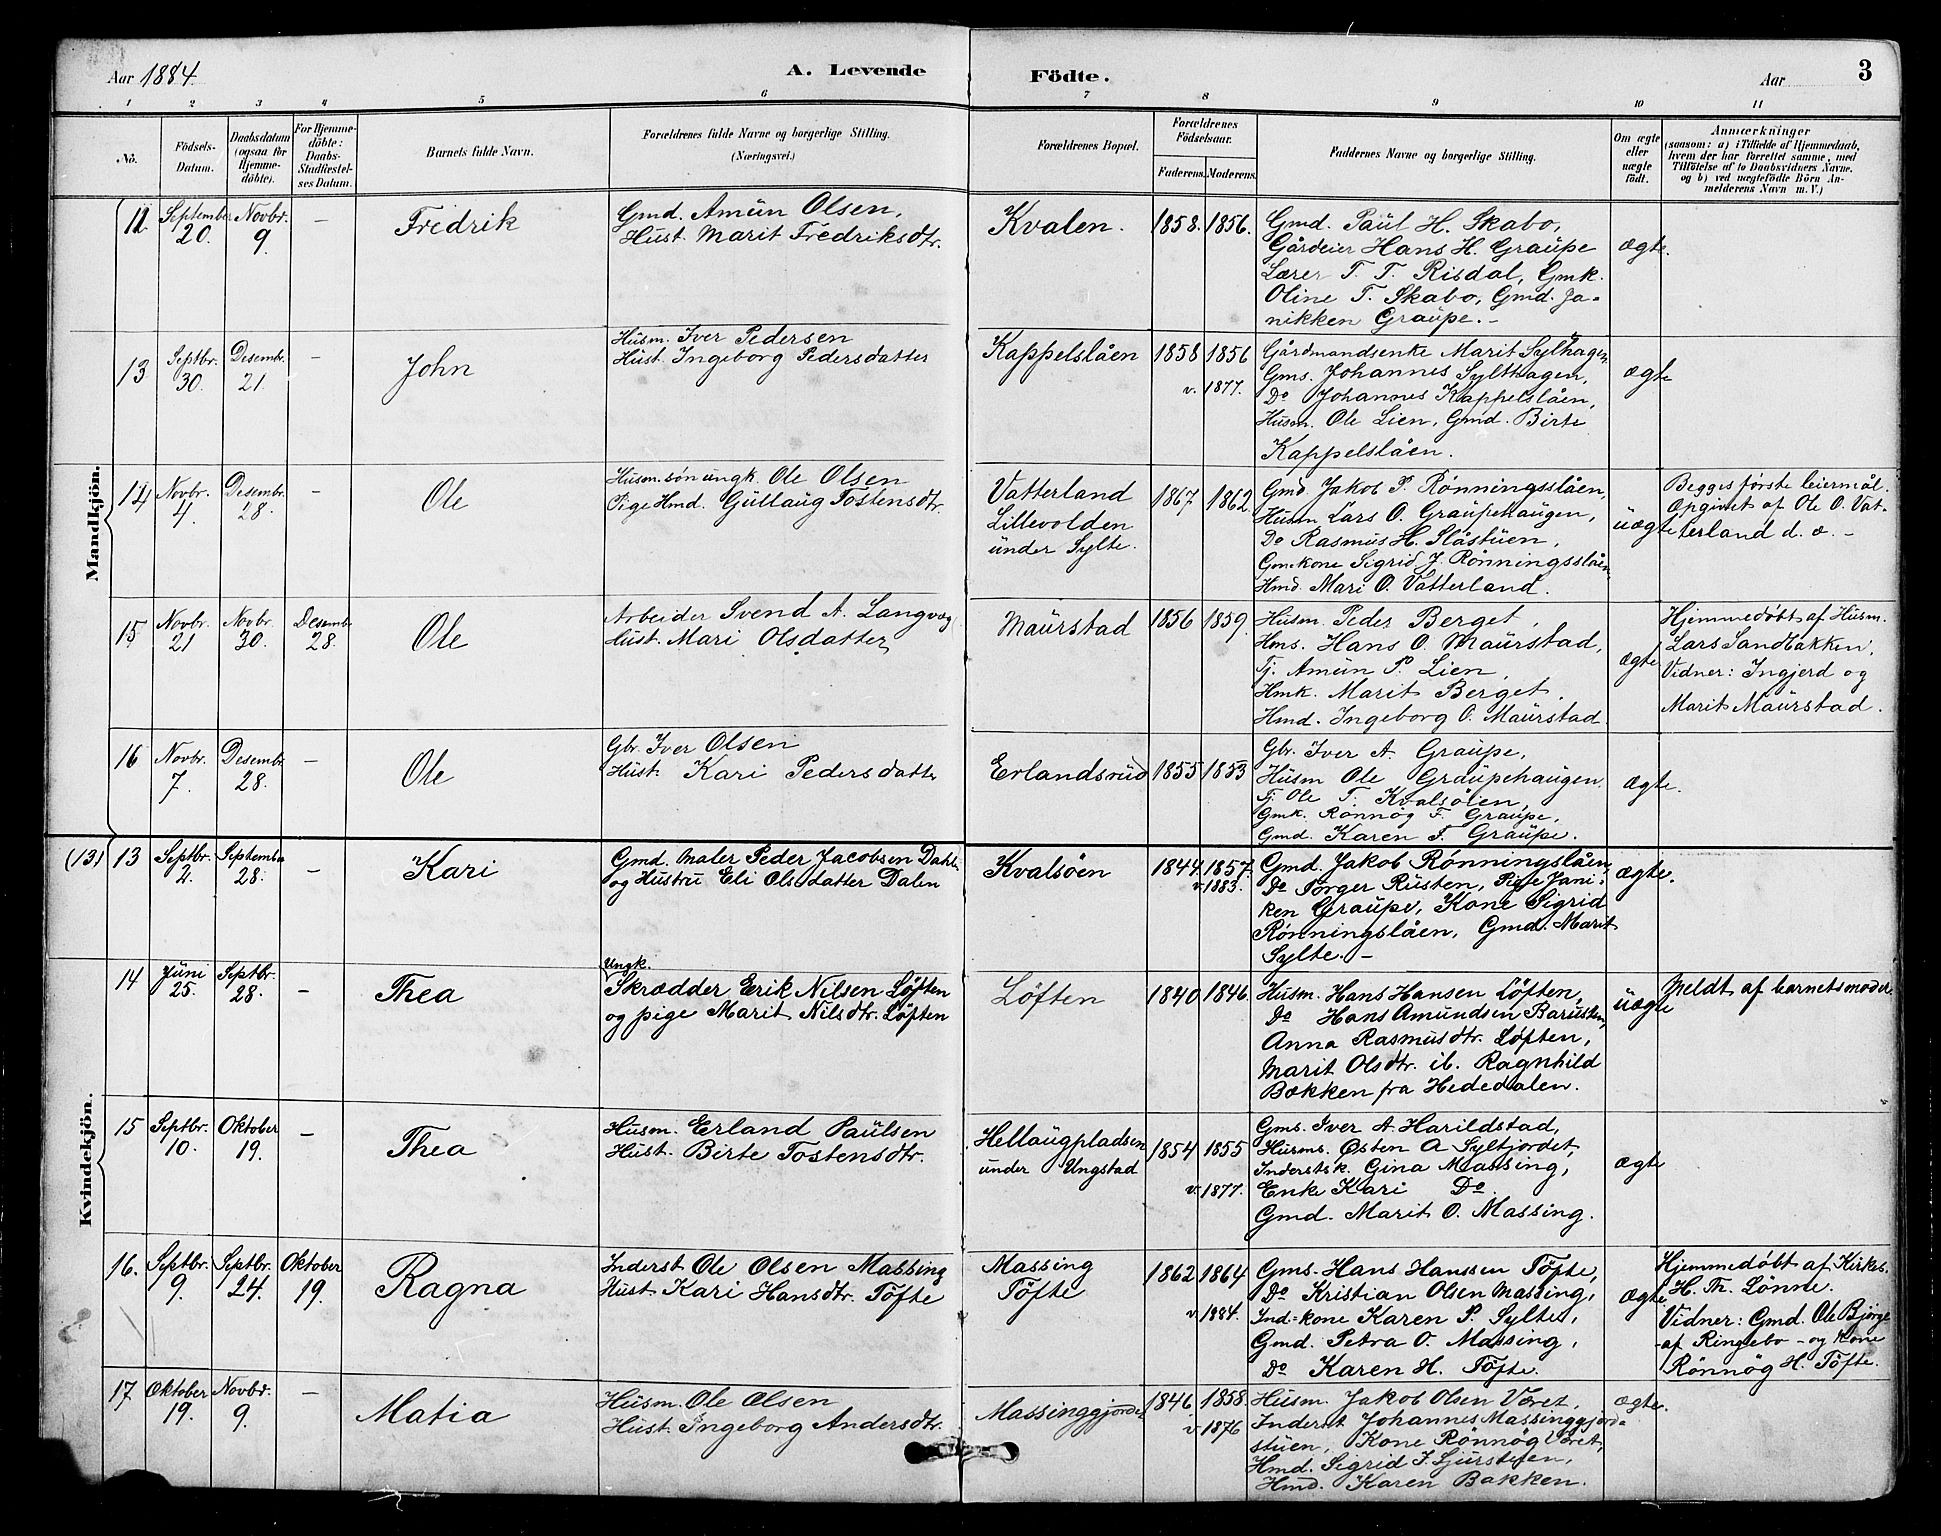 Aar 1884.
A. Levende
Födte.
Aar
3
1 2 3 4 5 6 7 8 9 10 11
No.
Födsels-
Datum.
Daabsdatum
(ogsaa for
Hjemme-
döbte).
For Hjemme-
döbte:
Daabs-
Stadfæstel-
ses Datum.
Barnets fulde Navn.
Forældrenes fulde Navne og borgerlige Stilling.
(Næringsvei.)
Forældrenes Bopæl.
Forældrenes
Födselsaar.
Faderens. Moderens.
Faddernes Navne og borgerlige Stilling.
Om ægte
eller
uægte
födt.
Anmærkninger
(saasom: a) i Tilfælde af Hjemmedaab,
hvem der har forrettet samme, med
Tilföielse af to Daabsvidners Navne,
og b) ved uægtefödte Börn An-
melderens Navn m. V.)
Mandkjön.
12 September 20. Novbr. 9 –
Fredrik
Gmd. Amün Olsen,
Hust. Marit Fredriksdtr.
Kvalen.
1858. 1856.
Gmd. Paul H. Skabo,
Gårdeier Hans H. Graupe
Lærer T. T. Risdal, Gmk.
Oline T. Skabo, Gmd. Ja-
nikken Graupe. –
ægte.
13 Septbr. 30. Desembr. 21. –
John
Husm. Iver Pedersen
Hust. Ingeborg Pedersdatter
Kappelslåen
1858 1856
v. 1877.
Gårdmandsenke Marit Sylhagen,
Gms. Johannes Sylthagen,
Do Johannes Kappelslåen,
Husm. Ole Lien, Gmd. Birte
Kappelslåen.
ægte
14 Novbr. 4. Desembr. 28. –
Ole
Husm.søn ungk. Ole Olsen
Pige Hmd. Gullaug Tostensdtr.
Vatterland
Lillevolden
under Sylte.
1867 1862
Gmd. Jakob P. Rønningsslåen,
Husm Lars O. Graupehaugen,
Do Rasmus H. Slåstuen,
Gm.kone Sigrid J. Rønningsslåen,
Hmd. Mari O. Vatterland.
uægte
Begges første leiermål.
Opgivet af Ole O. Vat-
terland d. æ. –
15 Novbr. 21 Novbr. 30. Desembr 28.
Ole
Arbeider Svend A. Langvæg
Hust. Mari Olsdatter
Maurstad
1856 1859.
Husm. Peder Berget,
Hms. Hans O. Maurstad,
Tj. Amün P. Lien,
Hmk. Marit Berget,
Hmd. Ingeborg O. Maurstad.
ægte
Hjemmedøbt af Husm.
Lars Sandbakken,
Vidner: Ingjerd og
Marit Maurstad.
16 Novbr. 7. Desembr 28. –
Ole
Gbr. Iver Olsen
Hust. Kari Pedersdatter
Erlandsrud
1855 1853
Gbr. Iver A. Graupe,
Husm Ole Graupehaugen,
Tj. Ole T. Kvalsøien,
Gmk. Rønnøg F. Graupe,
Gmd. Karen F. Graupe.
ægte.
Kvindekjön.
(13) 13 Septbr. 4. September 28. –
Kari
Gmd. Maler Peder Jacobsen Dahle
og Hustru Eli Olsdatter Dalen
Kvalsöen
1844. 1857.
v. 1883.
Gmd. Jakob Rønningslåen,
Do Torger Rusten, Pige Jani-
ken Graupe, Kone Sigrid
Rønningslåen, Gmd. Marit
Sylte. –
ægte.
14 Juni 25. Septbr. 28. –
Thea
Ungk.
Skrædder Erik Nilsen Løften
og pige Marit Nilsdtr. Løften
Løften
1840 1846.
Husm. Hans Hansen Løften,
Do Hans Amundsen Barusten,
Anna Rasmusdtr. Løften,
Marit Olsdtr. ib. Ragnhild
Bækken fra Hededalen.
uægte
Meldt af barnets moder
15 Septbr. 10. Oktober 19. –
Thea
Husm. Erland Paulsen
Hust. Birte Tostensdtr.
Hellaugpladsen
under Ungstad
1854 1855
v. 1877.
Gms. Iver A Harildstad,
Husms. Østen A Syltjordet,
Inderstsk. Gina Massing,
Enke Kari Do
Gmd. Marit O. Massing.
ægte
16. Septbr. 9. Septbr. 24. Oktober 19.
Ragna
Inderst Ole Olsen Massing
Hust. Kari Hansdtr. Töfte
Massing
Töfte
1862 1864
v. 1884.
Gms. Hans Hanssen Töfte,
Do Kristian Olsen Massing,
Ind.kone Karen P. Sylte,
Gmd. Petra O. Massing,
Do Karen H. Töfte.
ægte
Hjemmedøbt af Kirkes.
H. Th. Lønne.
Vidner: Gmd. Ole Bjørge
af Ringebo – og Kone
Rønnøg H. Töfte.
17 Oktober 19. Novbr. 9. –
Matia
Husm. Ole Olsen
Hust. Ingeborg Andersdtr.
Massinggjordet
1846 1858
v. 1876
Husm. Jakob Olsen Vøret,
Inderst Johannes Massinggjord-
stuen, Kone Rønnøg Vøret,
Hmd. Sigrid I. Sjurstuen,
Hmd. Karen Bakken.
ægte.